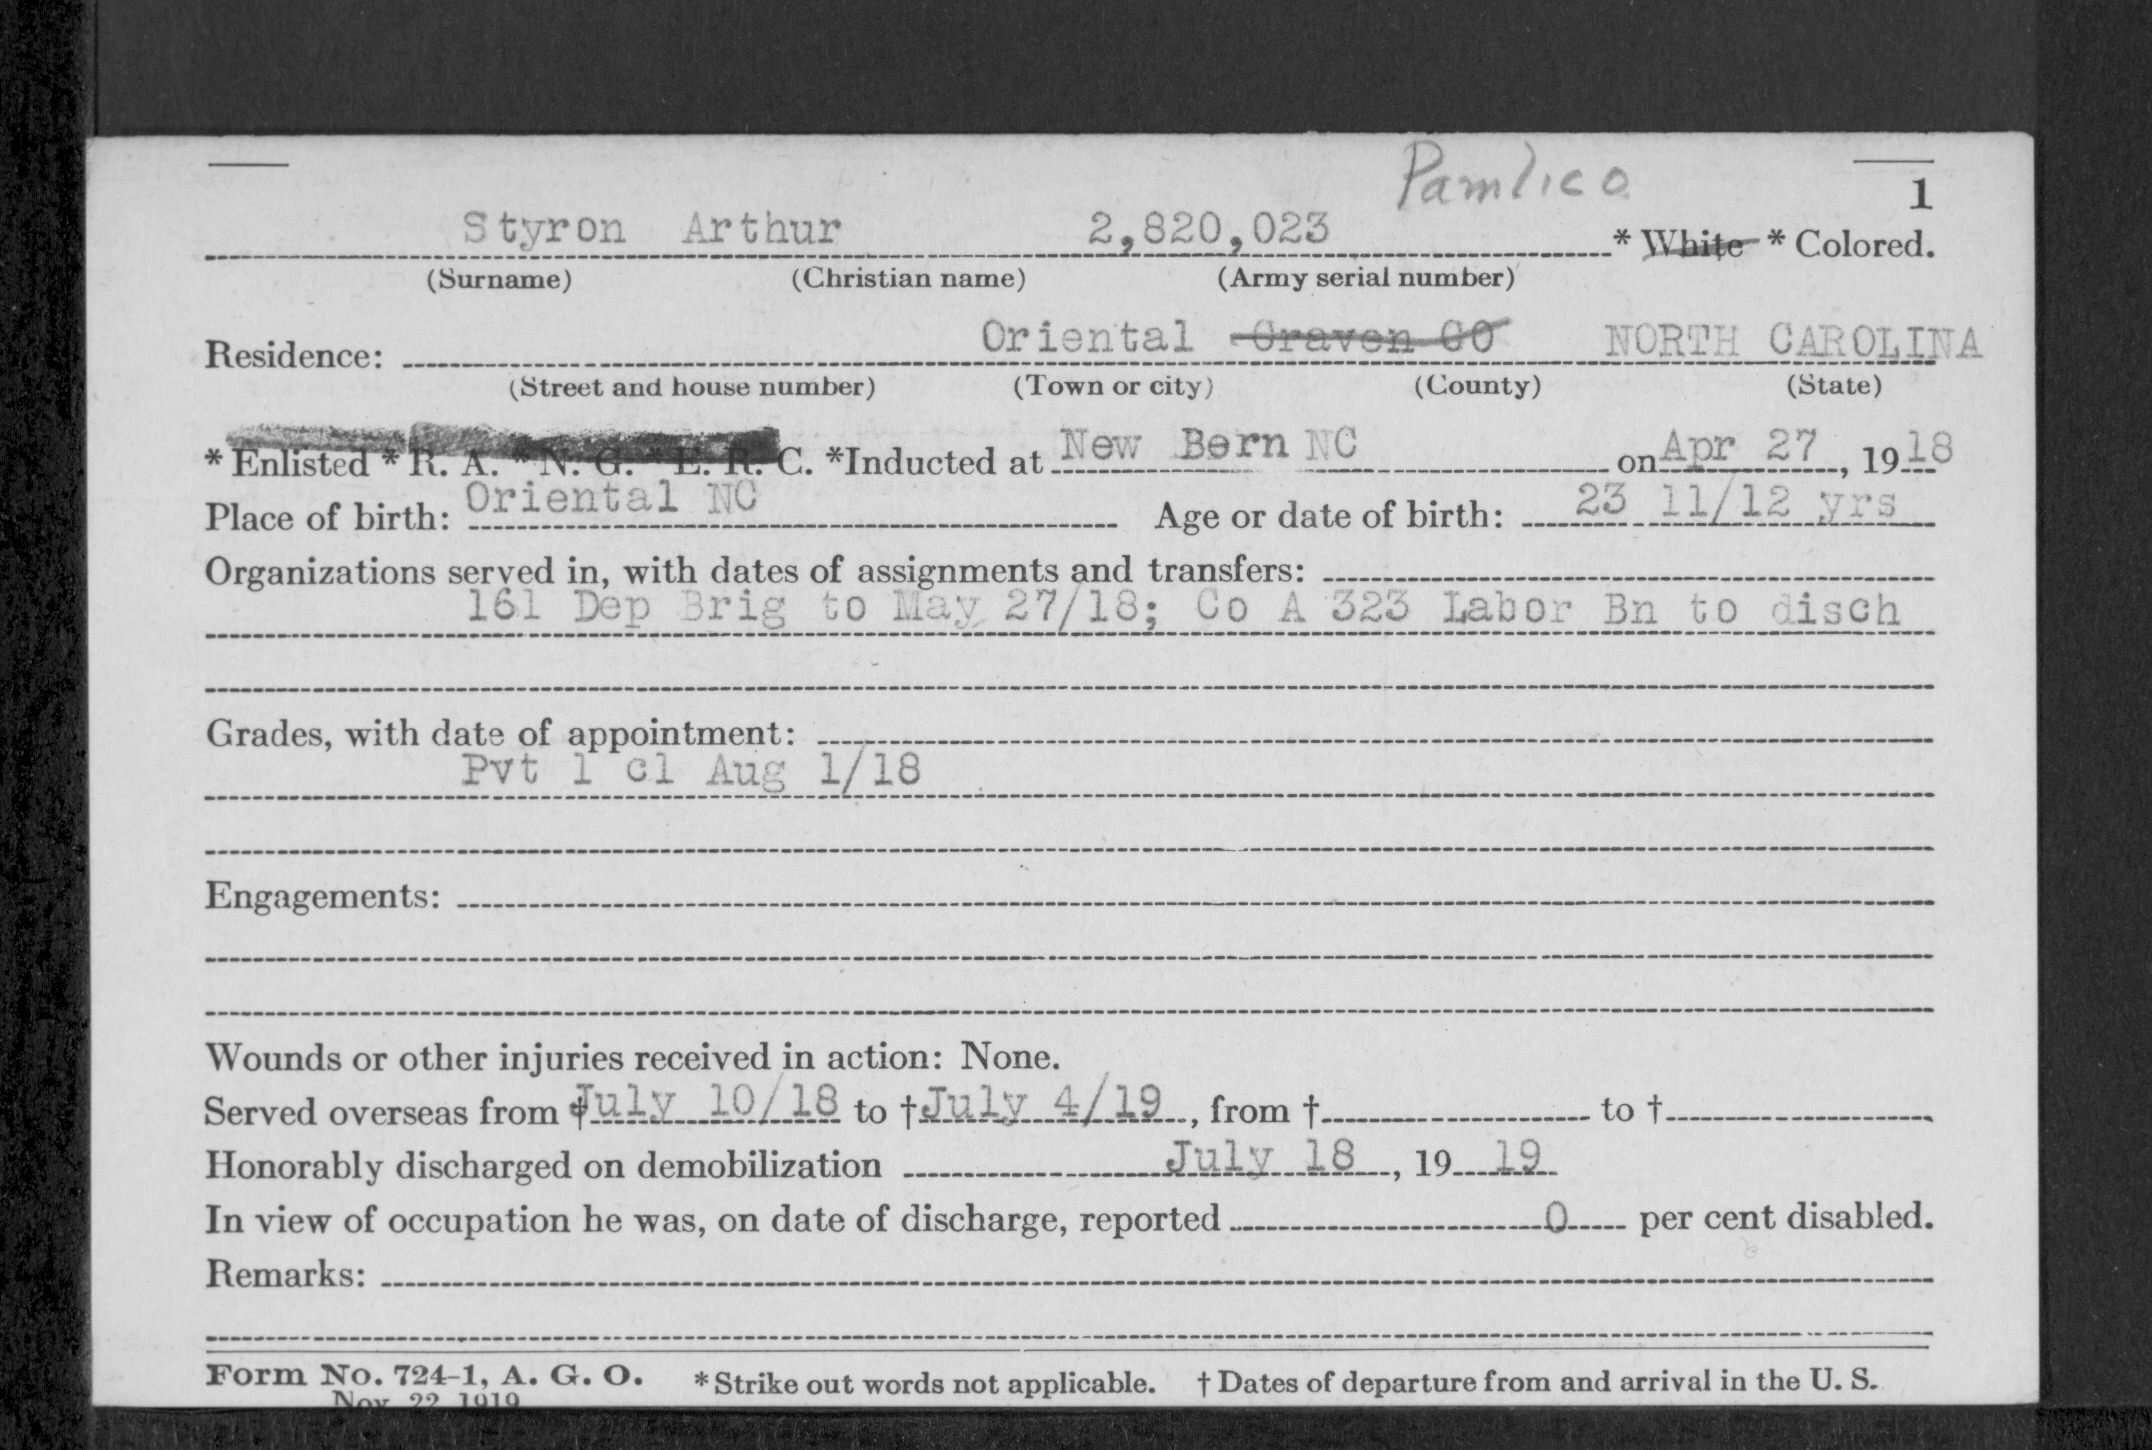 Pamlico
1
Styron Arthur 2,820,023 * White * Colored.
(Surname) (Christian name) (Army serial number)
Residence: Oriental Craven CO NORTH CAROLINA
(Street and house number) (Town or city) (County) (State)
* Enlisted * R. A. * N. G. * E. R. C. *Inducted at New Bern NC on Apr 27, 1918
Place of birth: Oriental NC Age or date of birth: 23 11/12 yrs
Organizations served in, with dates of assignments and transfers:
161 Dep Brig to May 27/18; Co A 323 Labor Bn to disch
Grades, with date of appointment:
Pvt 1 cl Aug 1/18
Engagements:
Wounds or other injuries received in action: None.
Served overseas from † July 10/18 to † July 4/19, from † to †
Honorably discharged on demobilization July 18, 19 19
In view of occupation he was, on date of discharge, reported 0 per cent disabled.
Remarks:
Form No. 724-1, A. G. O. * Strike out words not applicable. † Dates of departure from and arrival in the U. S.
Nov. 22 1919